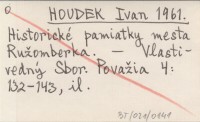 HOUDEK Ivan 1961.
Historické pamiatky mesta
Ružomberka. — Vlasti-
vedný Sbor. Považia 4:
132-143, il.
ST/021/0141